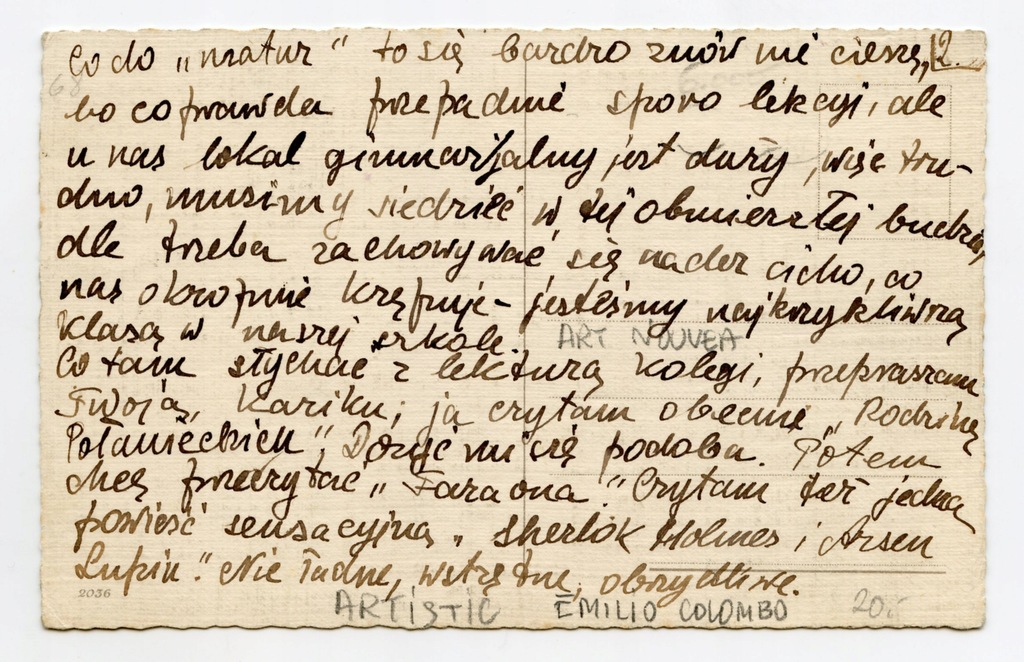 Co do „matur" to się bardzo znów nie cieszę, 2.
bo co prawda przepadnie sporo lekcyj, ale
u nas lokal gimnazjalny jest duży, więc tru-
dno, musimy siedzieć w tej obmierzłej budzie,
ale trzeba zachowywać się nader cicho, co
nas okropnie krępuje - jesteśmy najkrzykliwszą
klasą w naszej szkole.
ART NOUVEA
Co tam słychać z lekturą kolegi, przepraszam
Twoją, Kaziku; ja czytam obecnie „Rodzinę
Połanieckich", Dosyć mi się podoba. Potem
chcę przeczytać „Faraona". Czytam też jedną
powieść sensacyjną „Sherlok Holmes i Arsen
Lupin". Nie ładne, wstrętne, obrzydliwe.
2036
ARTISTIC EMILIO COLOMBO 20.-